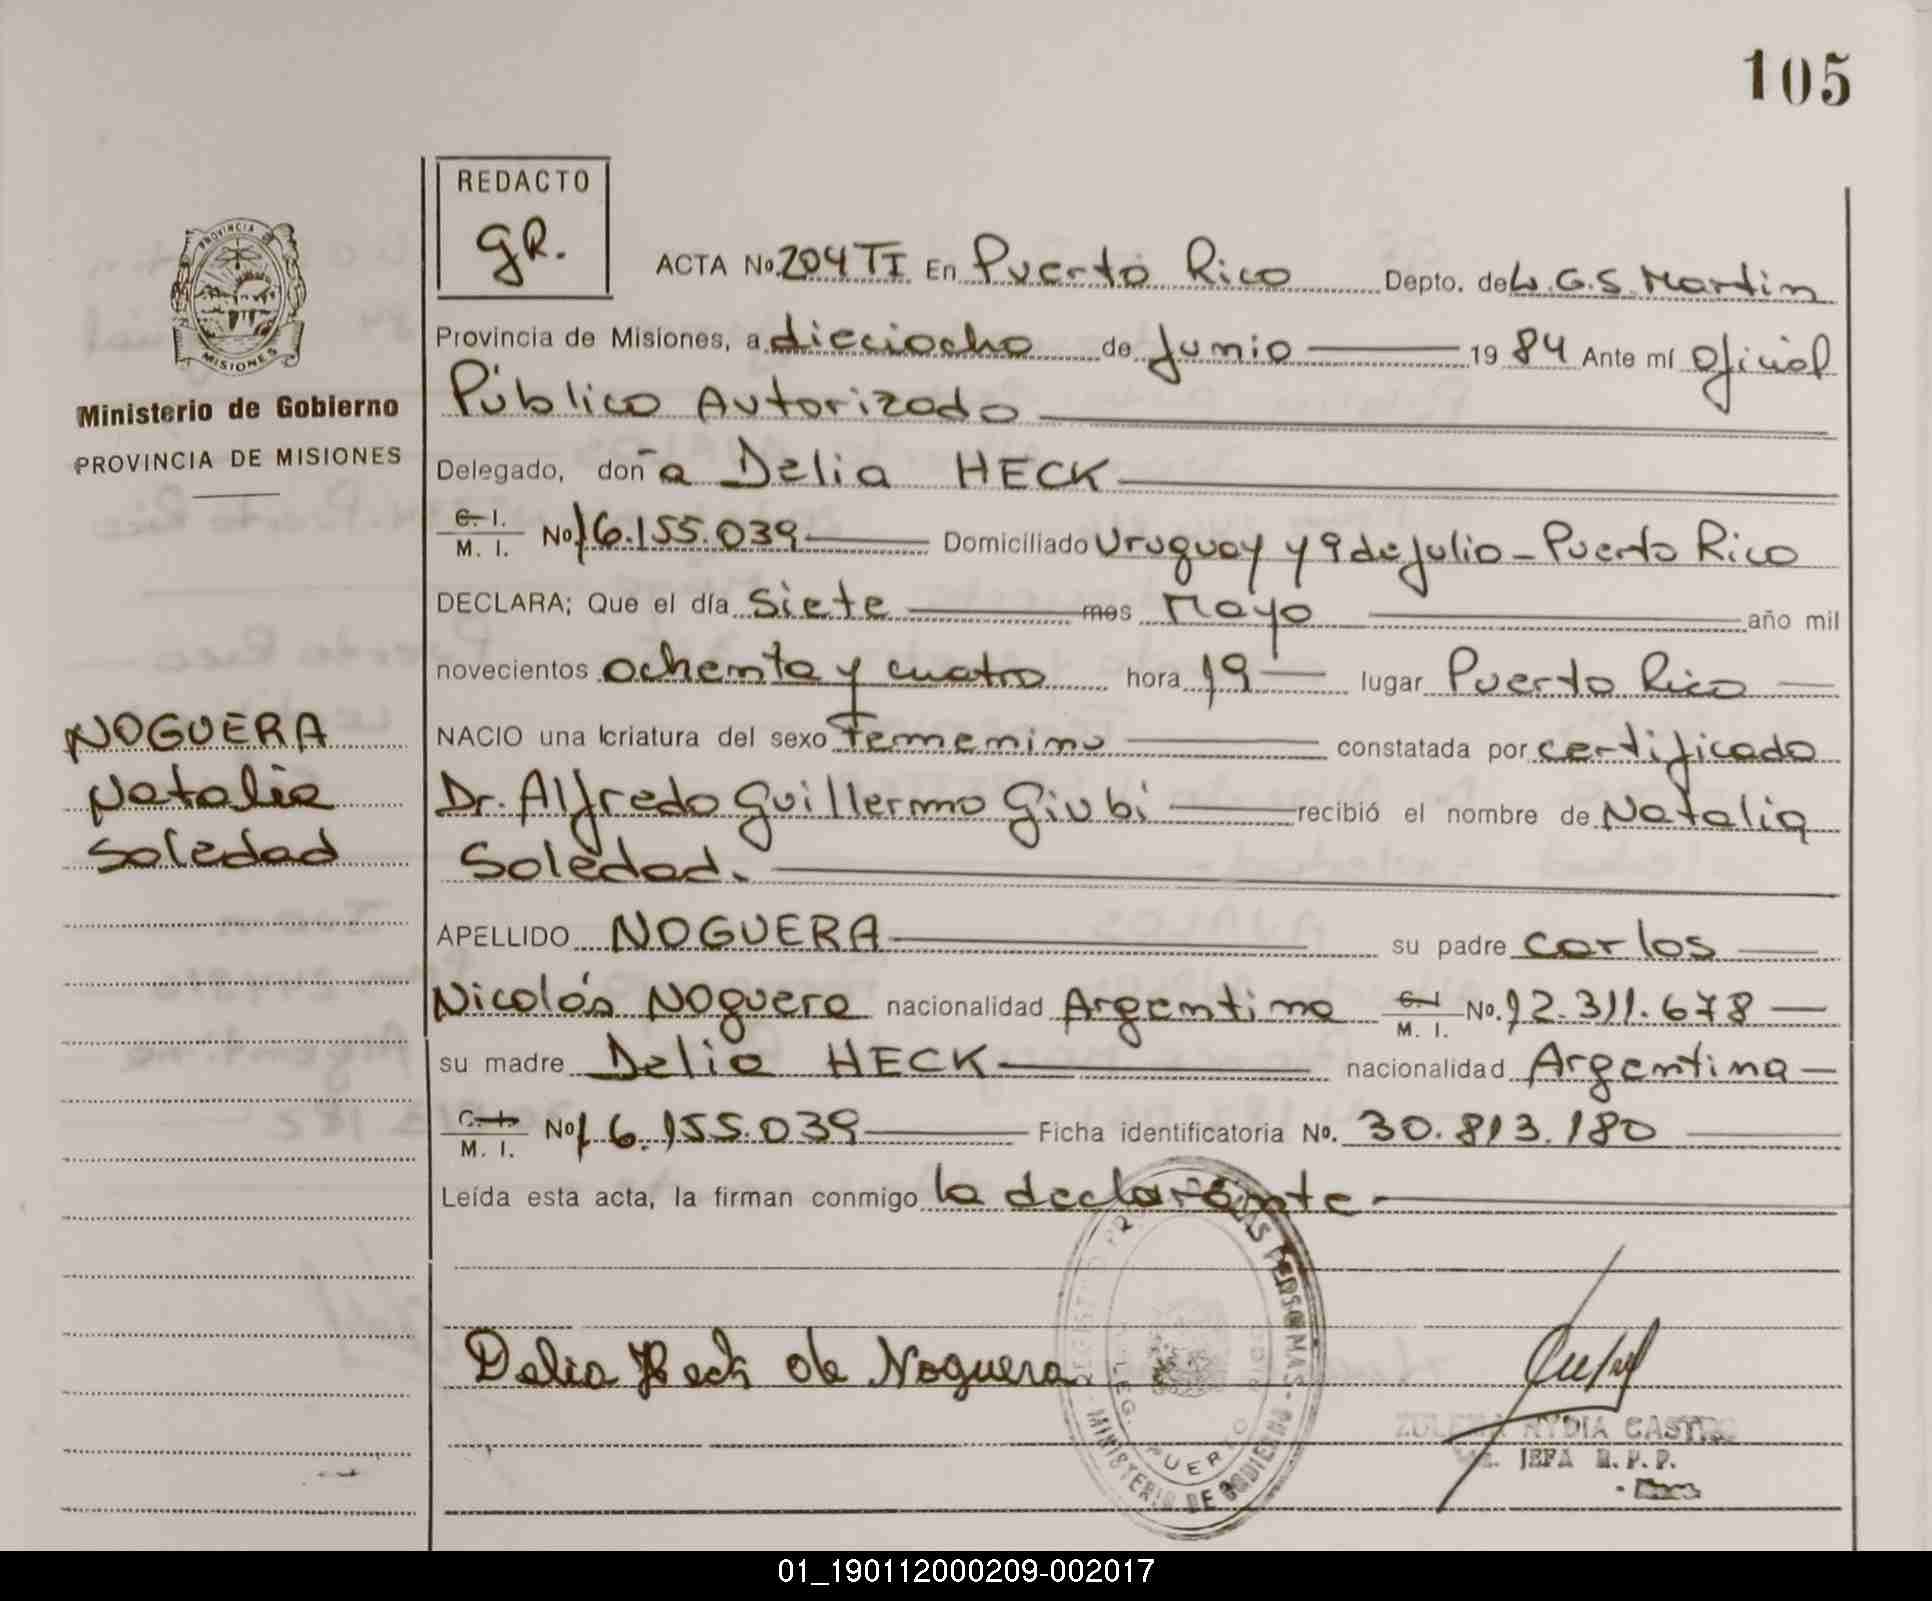 105
REDACTO
gR.
PROVINCIA DE
MISIONES
Ministerio de Gobierno
PROVINCIA DE MISIONES
ACTA No. 204 TI En Puerto Rico Depto. de L.G.S. Martin
Provincia de Misiones, a dieciocho de Junio 19 84 Ante mí Oficial
Público Autorizado
Delegado, don a Delia HECK
C. I. M. I. No 16.155.039 Domiciliado Uruguay y 9 de Julio - Puerto Rico
DECLARA; Que el día siete mes Mayo año mil
novecientos ochenta y cuatro hora 19 lugar Puerto Rico
NACIO una criatura del sexo Femenino constatada por certificado
Dr. Alfredo Guillermo Giubi recibió el nombre de Natalia
Soledad.
NOGUERA
Natalia
Soledad
APELLIDO NOGUERA su padre Carlos
Nicolás Noguera nacionalidad Argentina C. I. M. I. No. 12.311.678
su madre Delia HECK nacionalidad Argentina
C. I. M. I. No 16.155.039 Ficha identificatoria No. 30.813.180
Leída esta acta, la firman conmigo la declarante
Delia Heck de Noguera
MINISTERIO DE GOBIERNO
NYDIA CASTRO
JEFA R.P.P.
01_190112000209-002017